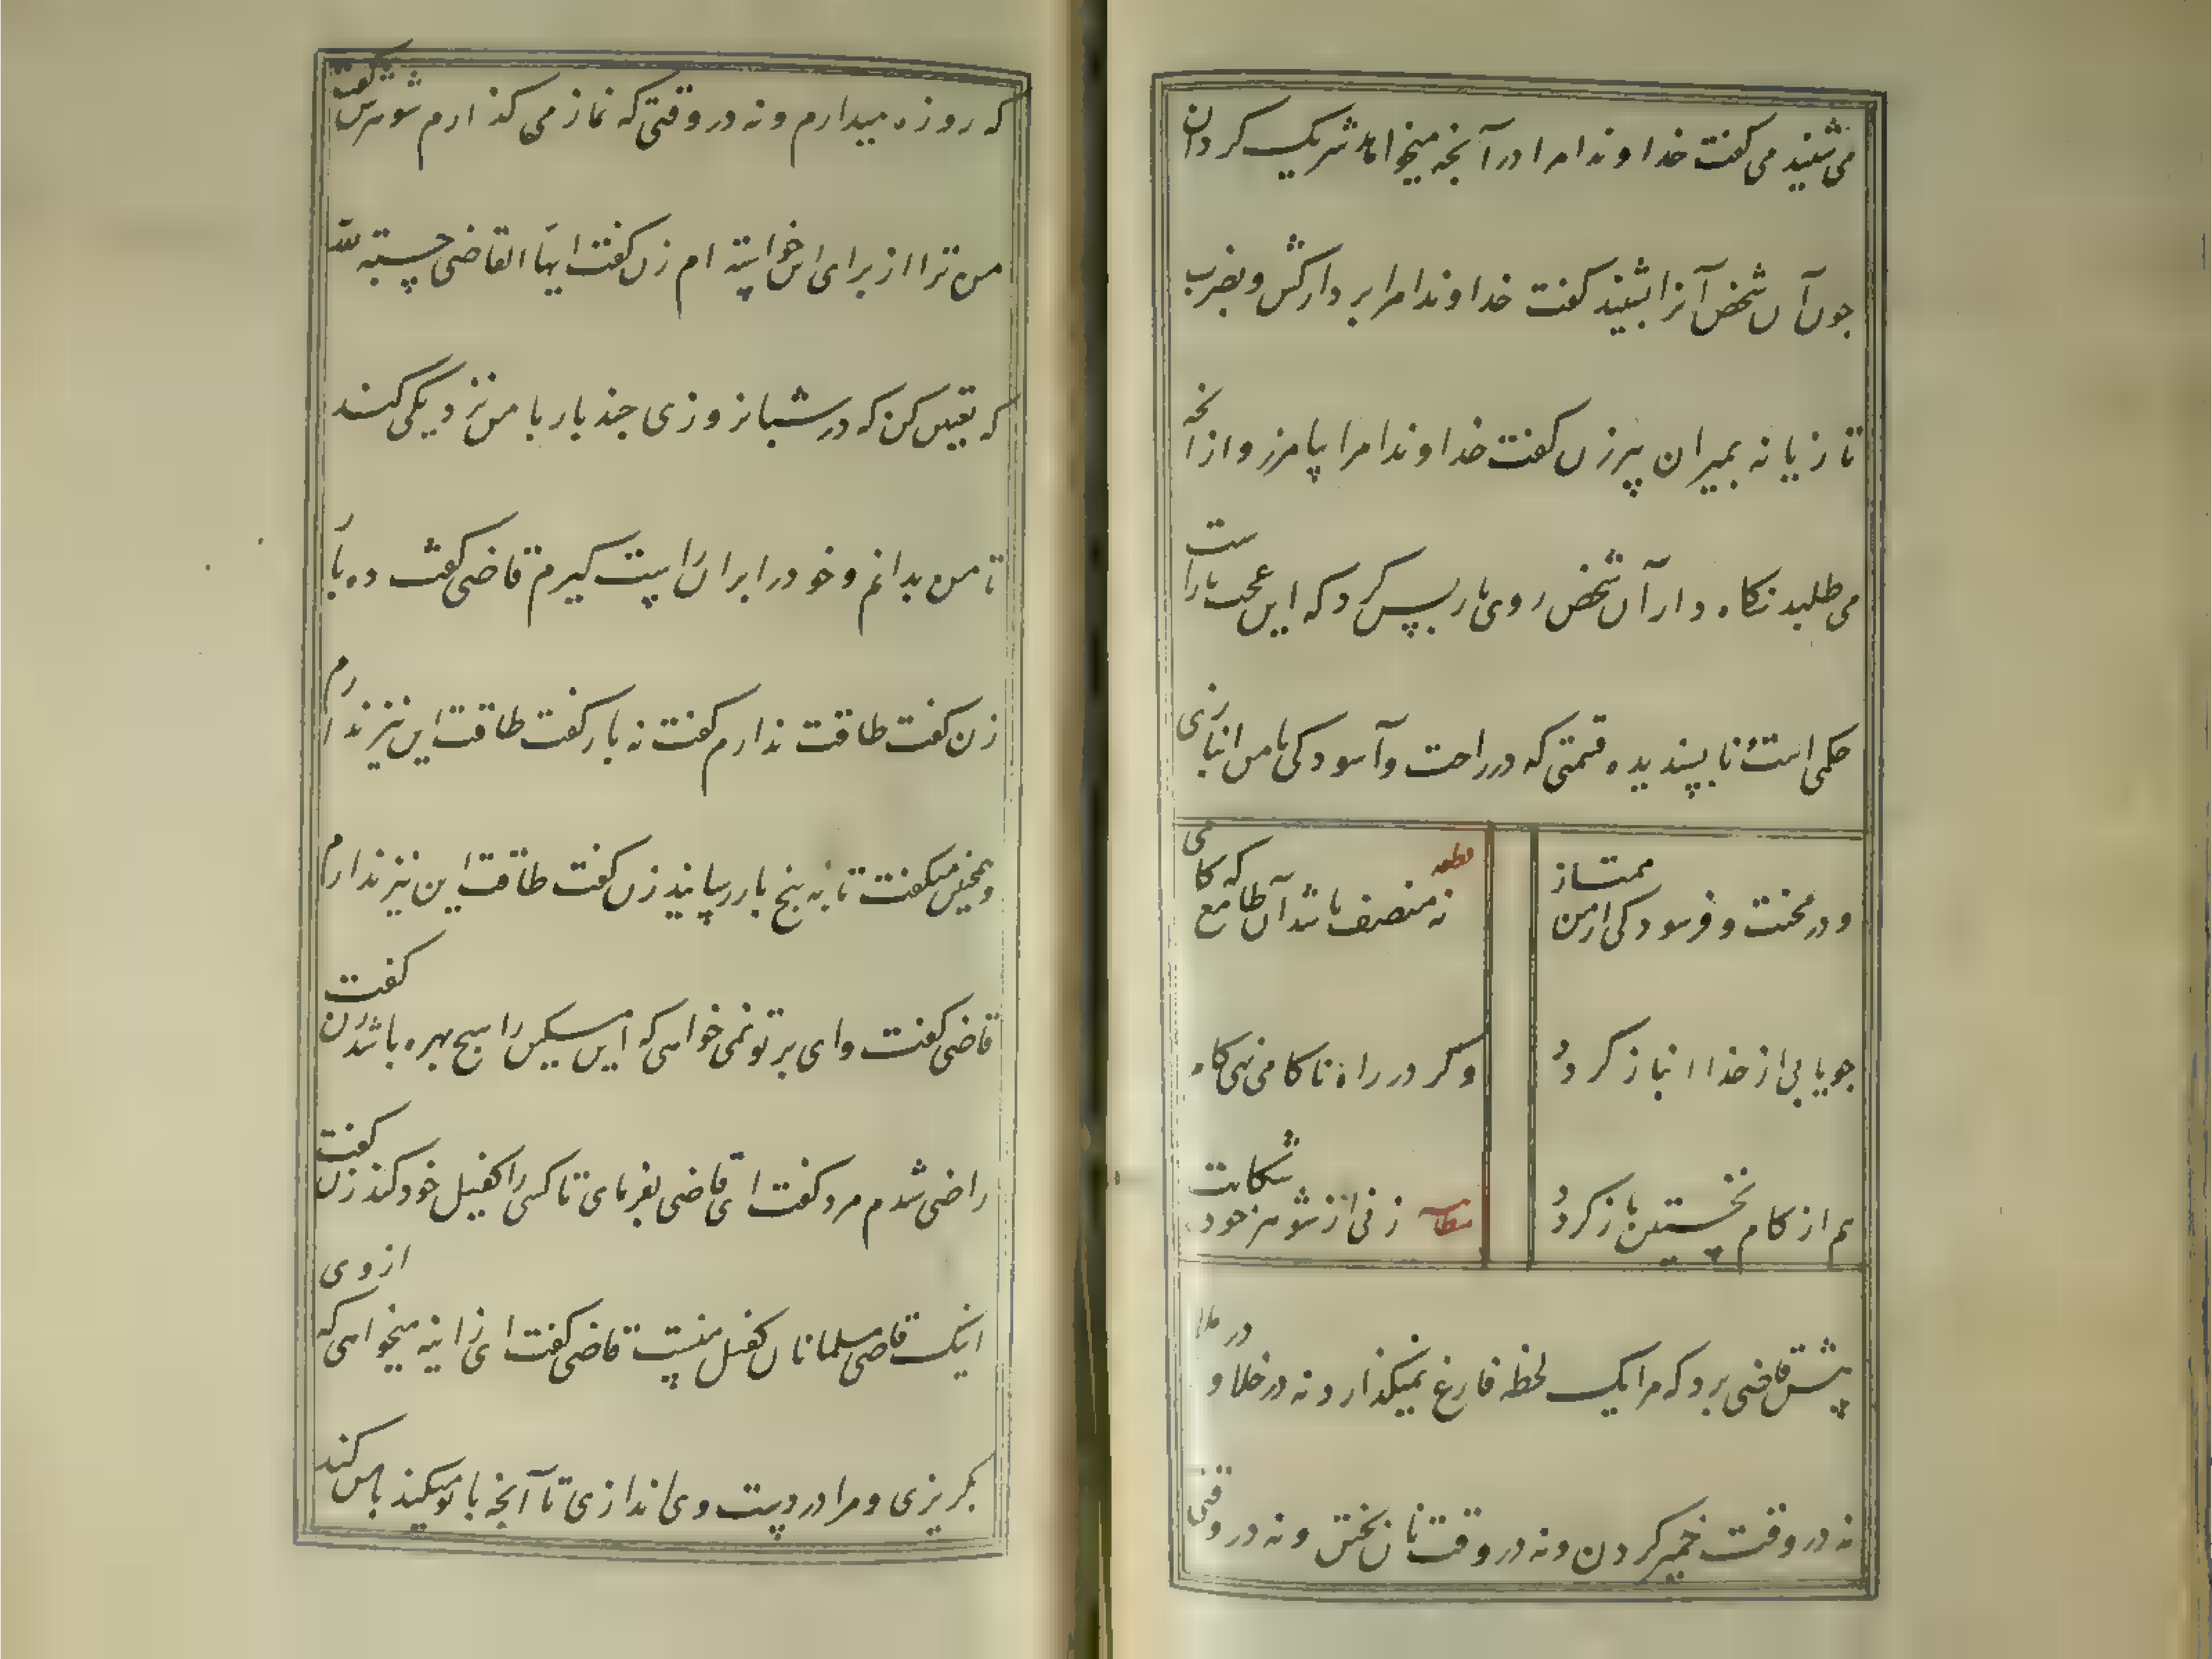 می شنید می گفت خداوندا مرا در آنچه میخواهد شریک گردان
چون آن شخص آنرا بشنید گفت خداوندا مرا بر دار کش و بضرب
تازیانه بمیران پیرزن گفت خداوندا مرا بیامرز و از آنچه
می طلبد نگاه دار آن شخص روی باز پس کرد که این عجب ناراست
حکمی است و ناپسندیده قسمتی که در راحت و آسودگی با من انبازی
و در محنت و فرسودگی از من ممتاز
قطعه نه منصف باشد آن طامع که کامی
چو یابی از خدا انباز گردد
وگر در راه ناکامی نهی گام
هم از گام نخستین باز گردد
مطایبه زنی از شوهر خود شکایت
پیش قاضی برد که مرا یک لحظه فارغ نمیگذارد نه در خلا و در ملا
نه در وقت خمیر کردن و نه در وقت نان پختن و نه در وقتی
که روزه میدارم و نه در وقتی که نماز می گذارم شوهرش گفت
من ترا از برای این خواسته ام زن گفت ایها القاضی حسبة لله
که تعیین کن که در شبانروزی چند بار با من نزدیکی کند
تا من بدانم و خود را بران راست گیرم قاضی گفت ده بار
زن گفت طاقت ندارم گفت نه بار گفت طاقت این نیز ندارم
و همچنین میگفت تا به پنج بار رسانید زن گفت طاقت این نیز ندارم
قاضی گفت وای بر تو نمی خواهی که این مسکین را هیچ بهره باشد زن گفت
راضی شدم مرد گفت ای قاضی بفرمای تا کسی را کفیل خود کند زن گفت
اینک قاضی مسلمانان کفیل منست قاضی گفت ای زانیه میخواهی که از وی
بگریزی و مرا در دست وی اندازی تا آنچه با تو میکند با من کند